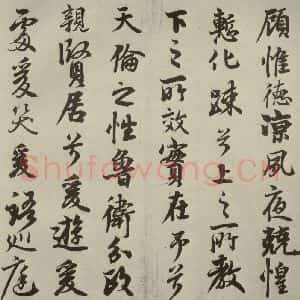 顧惟德涼夙夜兢惶
慙化踈兮上之所教
下之所效實在予兮
天倫之性魯衛分政
親賢居兮爰遊爰
處爰笑爰語巡庭
Shufawang.cn